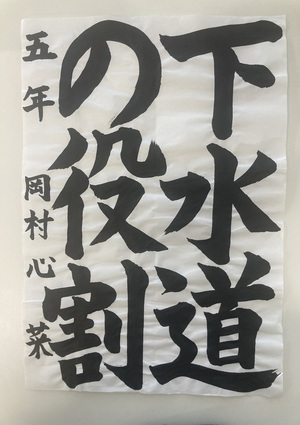 下水道
の役割
五年 岡村心菜